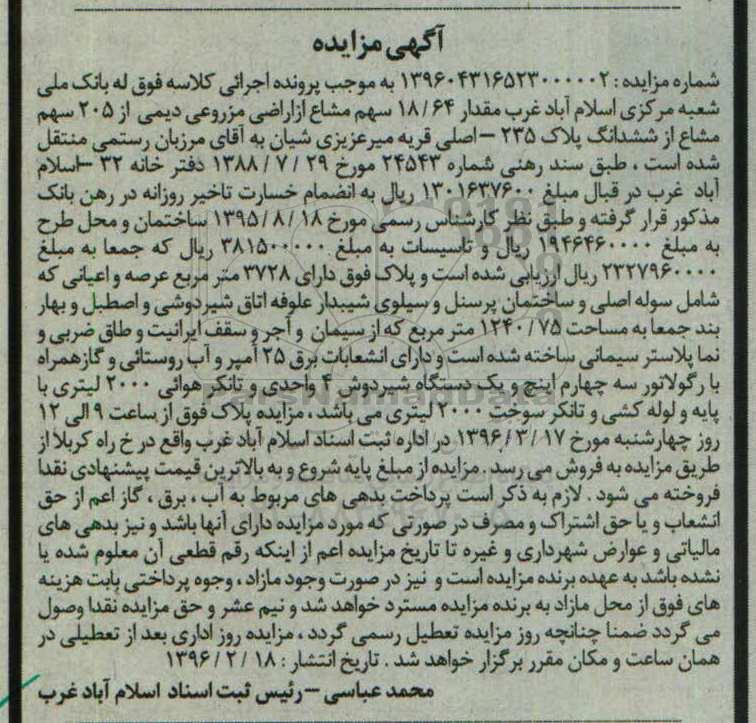 آگهی مزایده
شماره مزایده : ۱۳۹۶۰۴۳۱۶۵۲۳۰۰۰۰۰۲ به موجب پرونده اجرائی کلاسه فوق له بانک ملی
شعبه مرکزی اسلام آباد غرب مقدار ۱۸/۶۴ سهم مشاع ازاراضی مزروعی دیمی از ۲۰۵ سهم
مشاع از ششدانگ پلاک ۲۳۵ –اصلی قریه میرعزیزی شیان به آقای مرزبان رستمی منتقل
شده است ، طبق سند رهنی شماره ۲۴۵۴۳ مورخ ۲۹ / ۷ / ۱۳۸۸ دفتر خانه ۳۲ –اسلام
آباد غرب در قبال مبلغ ۱۳۰۱۶۳۷۶۰۰ ریال به انضمام خسارت تاخیر روزانه در رهن بانک
مذکور قرار گرفته و طبق نظر کارشناس رسمی مورخ ۱۸ / ۸ / ۱۳۹۵ ساختمان و محل طرح
به مبلغ ۱۹۴۶۴۶۰۰۰۰ ریال و تاسیسات به مبلغ ۳۸۱۵۰۰۰۰۰ ریال که جمعا به مبلغ
۲۳۲۷۹۶۰۰۰۰ ریال ارزیابی شده است و پلاک فوق دارای ۳۷۲۸ متر مربع عرصه و اعیانی که
شامل سوله اصلی و ساختمان پرسنل و سیلوی شیبدار علوفه اتاق شیردوشی و اصطبل و بهار
بند جمعا به مساحت ۷۵ / ۱۲۴۰ متر مربع که از سیمان و آجر و سقف ایرانیت و طاق ضربی و
نما پلاستر سیمانی ساخته شده است و دارای انشعابات برق ۲۵ آمپر و آب روستائی و گازهمراه
با رگولاتور سه چهارم اینچ و یک دستگاه شیردوش ۴ واحدی و تانکر هوائی ۲۰۰۰ لیتری با
پایه و لوله کشی و تانکر سوخت ۲۰۰۰ لیتری می باشد ، مزایده پلاک فوق از ساعت ۹ الی ۱۲
روز چهارشنبه مورخ ۱۷ / ۳ / ۱۳۹۶ در اداره ثبت اسناد اسلام آباد غرب واقع در خ راه کربلا از
طریق مزایده به فروش می رسد . مزایده از مبلغ پایه شروع و به بالاترین قیمت پیشنهادی نقدا
فروخته می شود . لازم به ذکر است پرداخت بدهی های مربوط به آب ، برق ، گاز اعم از حق
انشعاب و یا حق اشتراک و مصرف در صورتی که مورد مزایده دارای آنها باشد و نیز بدهی های
مالیاتی و عوارض شهرداری و غیره تا تاریخ مزایده اعم از اینکه رقم قطعی آن معلوم شده یا
نشده باشد به عهده برنده مزایده است و نیز در صورت وجود مازاد ، وجوه پرداختی بابت هزینه
های فوق از محل مازاد به برنده مزایده مسترد خواهد شد و نیم عشر و حق مزایده نقدا وصول
می گردد ضمنا چنانچه روز مزایده تعطیل رسمی گردد ، مزایده روز اداری بعد از تعطیلی در
همان ساعت و مکان مقرر برگزار خواهد شد . تاریخ انتشار : ۱۸ / ۲ / ۱۳۹۶
محمد عباسی –رئیس ثبت اسناد اسلام آباد غرب
ParsNamadData